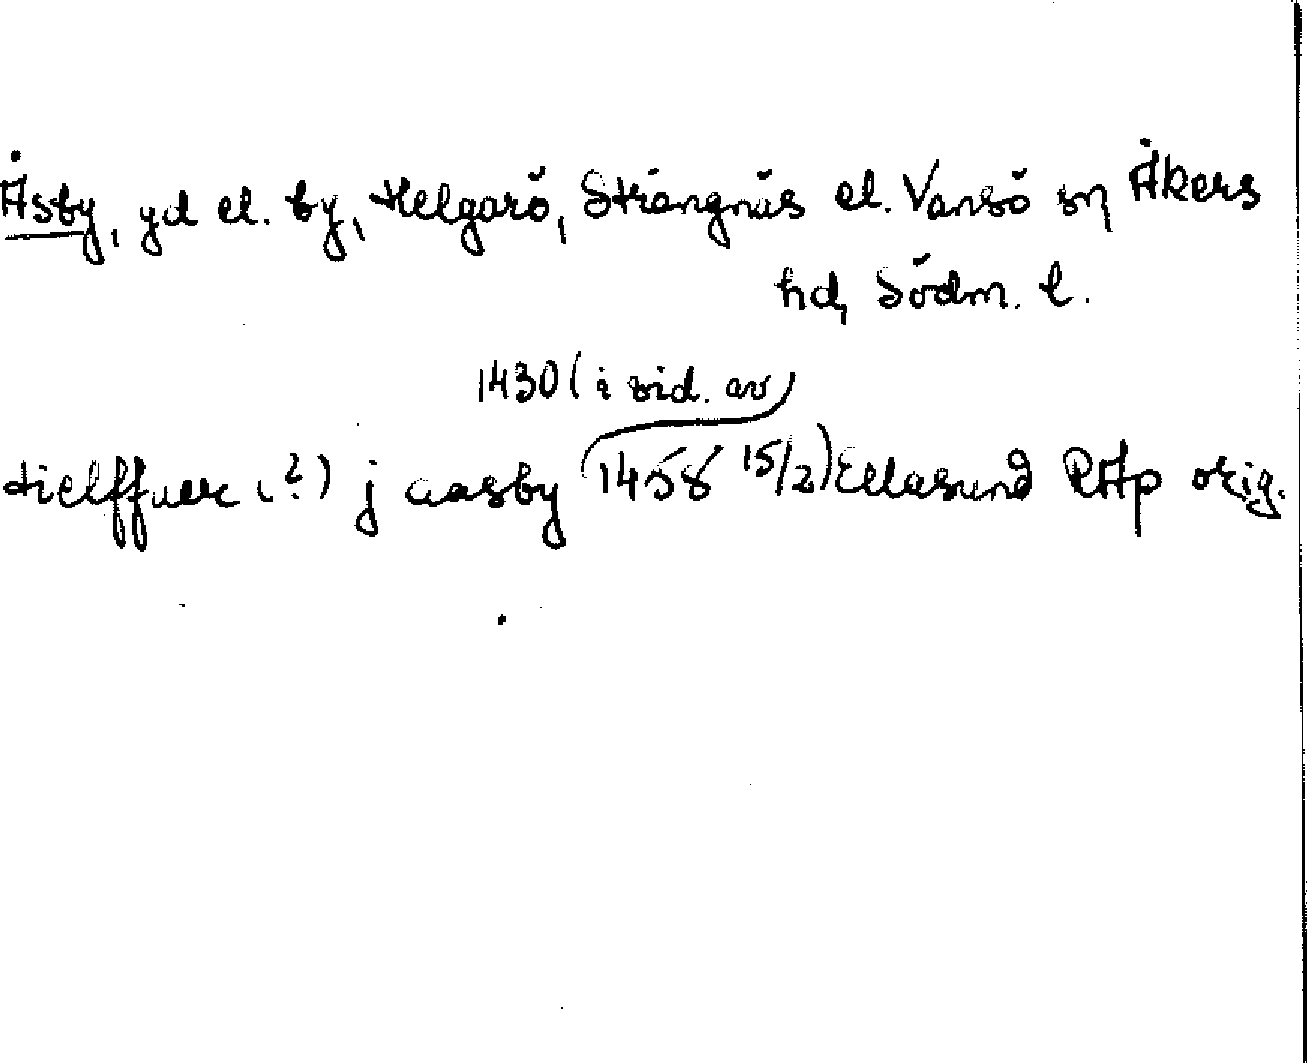 Åsby, gd el. by, Helgarö, Strängnäs el. Vansö sn Åkers
hd, Södm. l.
1430 (i vid. av)
Hielffuer (?) j aasby (1458 15/2) Ellasund RAp orig.